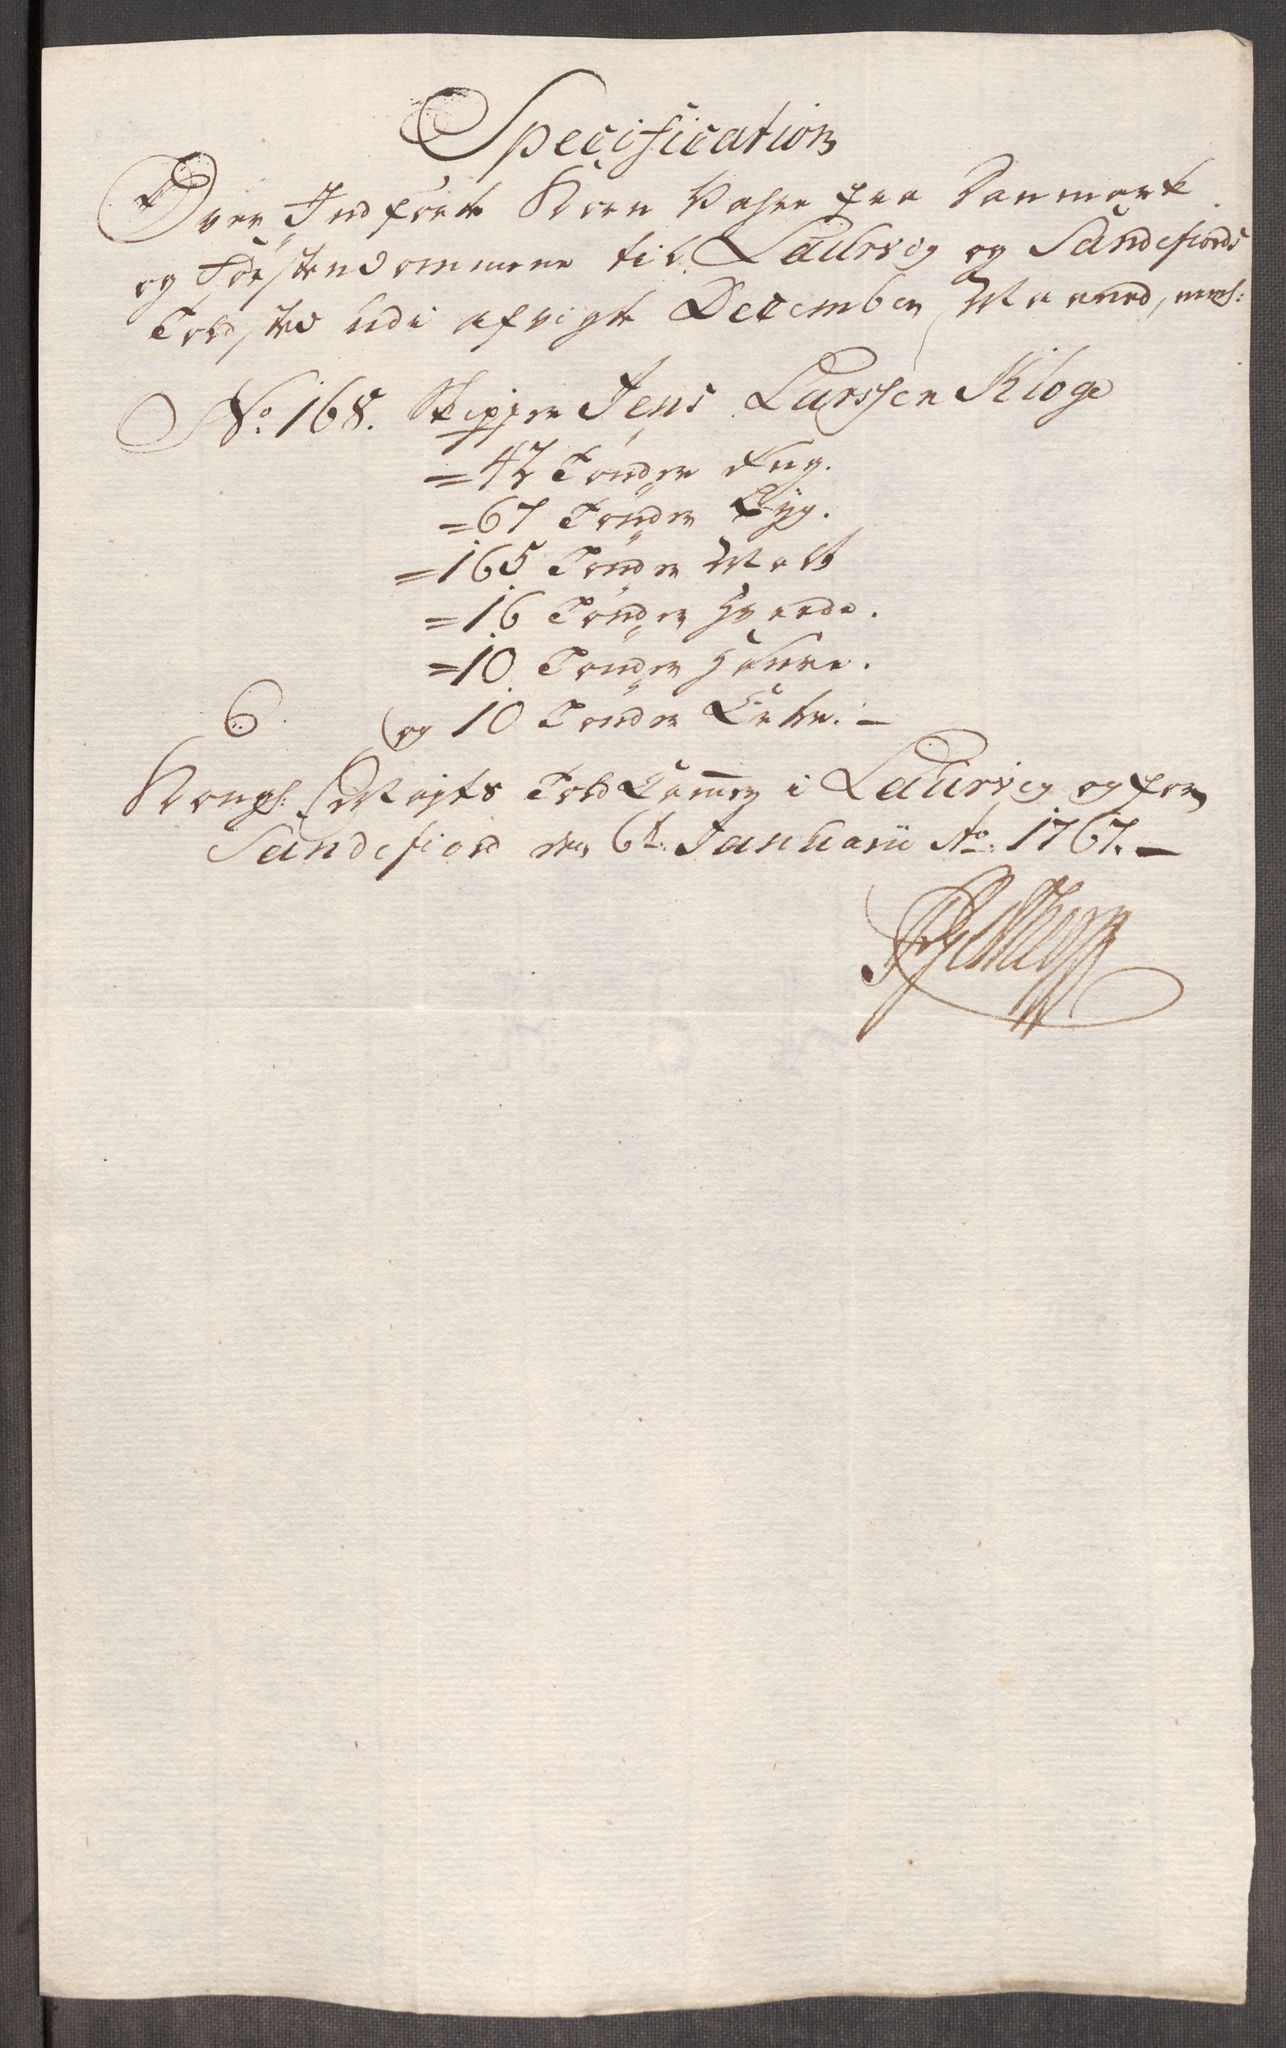 Specification
Over Indförte Korn Vahre fra Danmark
og Förstendommene til Laurvig og Sandefiords
Toldsted udi afvigte December Maaned, nemlig:
No. 168. Skipper Jens Larssen Kloge
= 42 Tönder Rug.
= 67 Tönder Byg.
= 165 Tönder Malt
= 16 Tönder Hvede.
= 10 Tönder Hafre.
og 10 Tönder Erter. –
Kongl. Mayts Told Kammer i Laurvig og for
Sandefiord den 6t. Januarii Ao. 1767. –